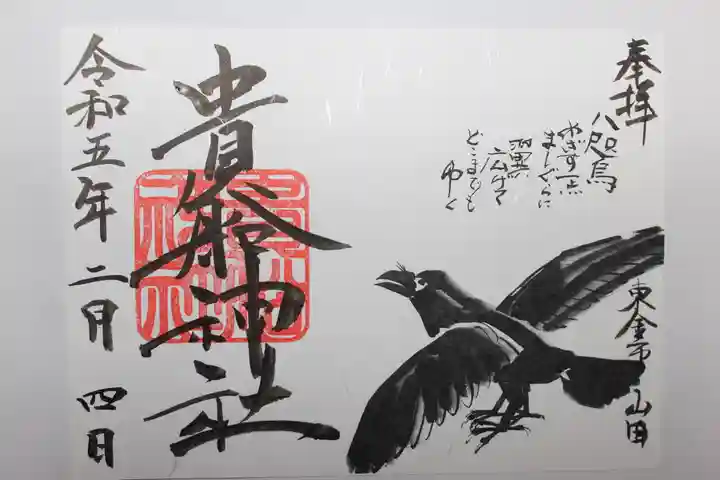 奉拝
八咫烏
めざす一点
ましぐらに
翼
広げて
どこまでも
ゆく
東金市山田
貴船神社
令和五年二月四日